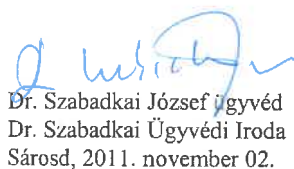 Dr. Szabadkai József ügyvéd
Dr. Szabadkai Ügyvédi Iroda
Sárosd, 2011. november 02.